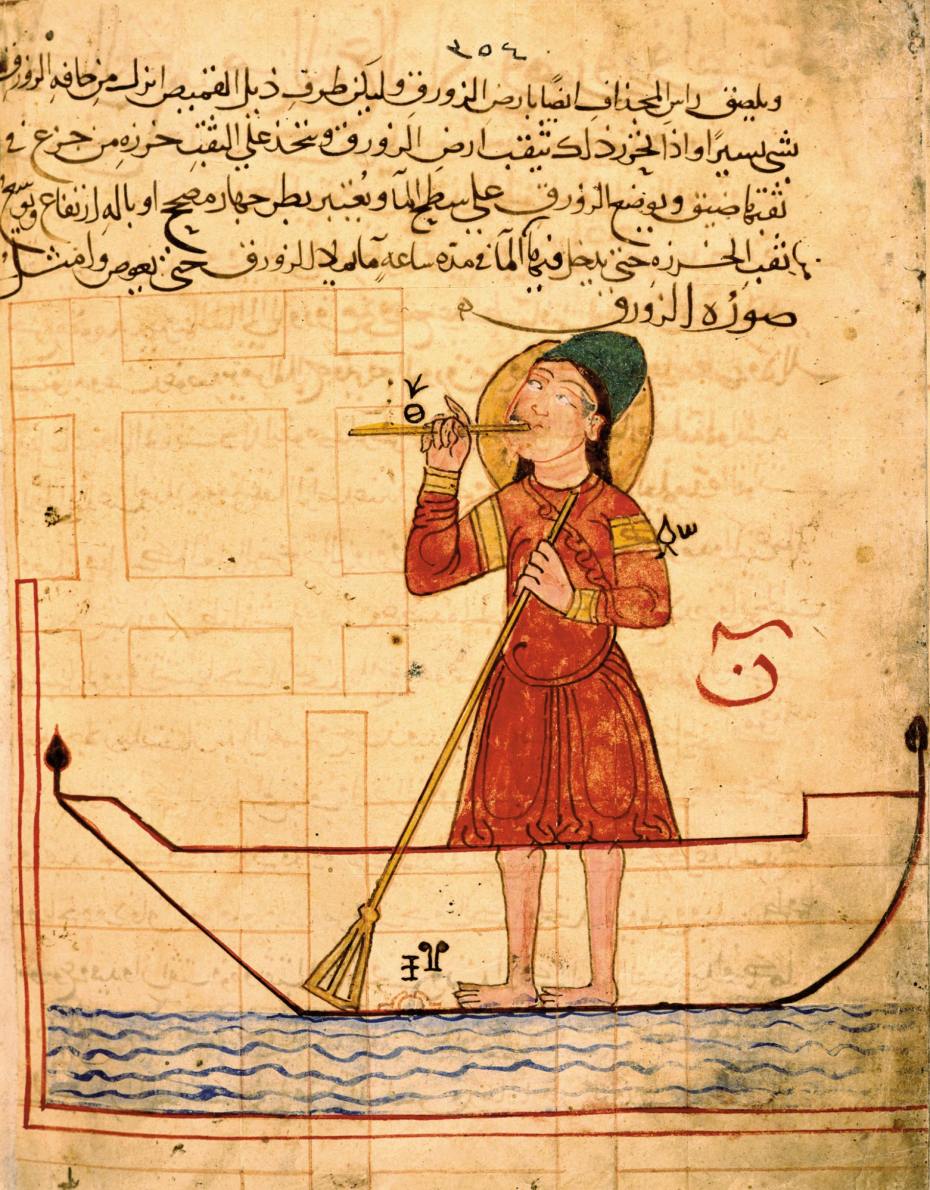 ٢٥٤
ويلصق راس المجذاف ايضًا بارض الزورق وليكن طرف ذيل القميص انزل من حافه الزورق
شي يسيرًا واذا نجز ذلك تثقب ارض الزورق ويتخذ على الثقب خرزه من جزع في
ثقبها ضيق ويوضع الزورق على سطح المآ ويعتبر بطرجهاره مصحح او باله ارتفاع ويوسع
ثقب الخرزه حتى يدخل فيها المآ في مده ساعه ما يملا الزورق حتى يغوص وامثل
صورة الزورق
ن